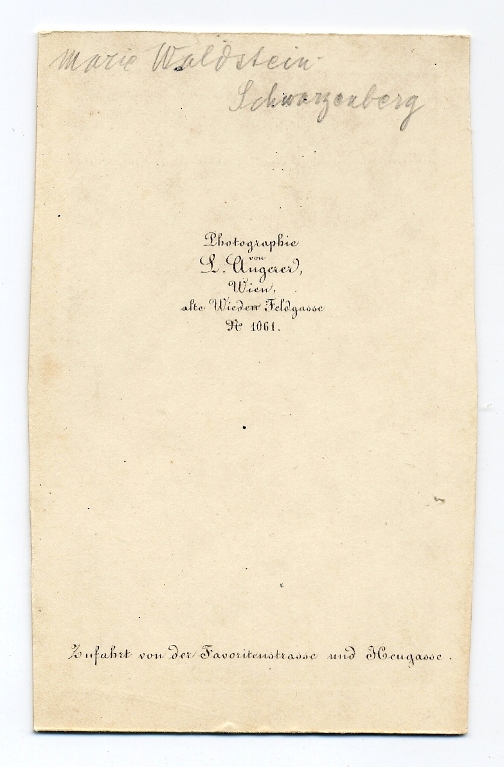 Marie Waldstein-
Schwarzenberg
Photographie
von
L. Angerer,
Wien,
alte Wieden Feldgasse
No 1061.
Zufahrt von der Favoritenstrasse und Heugasse.